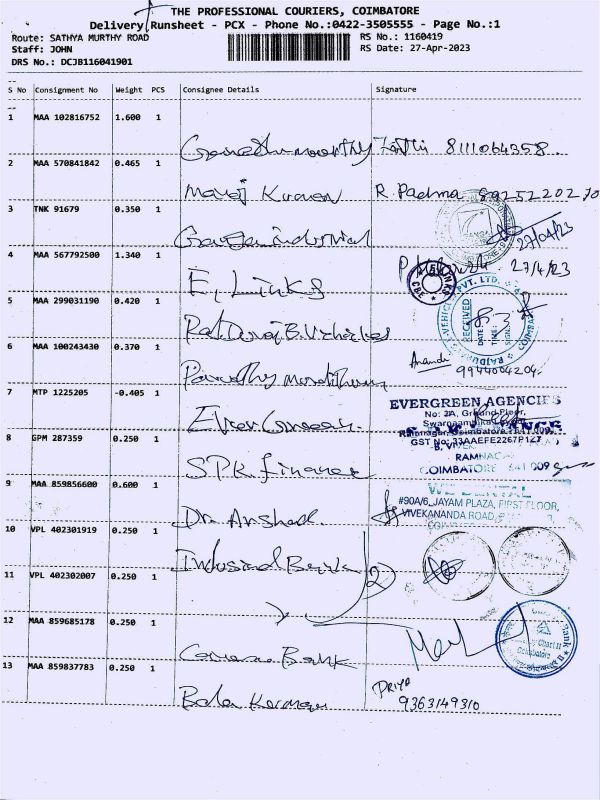 THE PROFESSIONAL COURIERS, COIMBATORE
Delivery Runsheet - PCX - Phone No.:0422-3505555 - Page No.:1
Route: SATHYA MURTHY ROAD
RS No.: 1160419
Staff: JOHN
RS Date: 27-Apr-2023
DRS No.: DCJB116041901
S No Consignment No Weight PCS Consignee Details Signature
1 MAA 102816752 1.600 1
Ganeshmoorthy 8111064358
2 MAA 570841842 0.465 1
Manoj Kumar R. Padma 8925220270
3 TNK 91679 0.350 1
Industrial 27/04/23
4 MAA 567792500 1.340 1
E, Links 27/4/23
LINKS
CBE
5 MAA 299031190 0.420 1
PVT. LTD.
RECEIVED
DATE
TIME
SIGN
COIMBATORE
6 MAA 100243430 0.370 1
Anandh
9944004204
7 MTP 1225205 -0.405 1
EVERGREEN AGENCIES
No: 2A, Ground Floor,
Ramnagar, Coimbatore
GST No: 33AAEFE2267P1Z7
8 GPM 287359 0.250 1
SPK finance
RAMNAGAR
COIMBATORE 641 009
9 MAA 859856600 0.600 1
Dr. Arshad
DENTAL
#90A/6, JAYAM PLAZA, FIRST FLOOR,
VIVEKANANDA ROAD,
10 VPL 402301919 0.250 1
Indusind Bank 2
11 VPL 402302007 0.250 1
12 MAA 859685178 0.250 1
Canara Bank
Bank
Coimbatore
13 MAA 859837783 0.250 1
Bala Kumar
PRIYA
9363149310